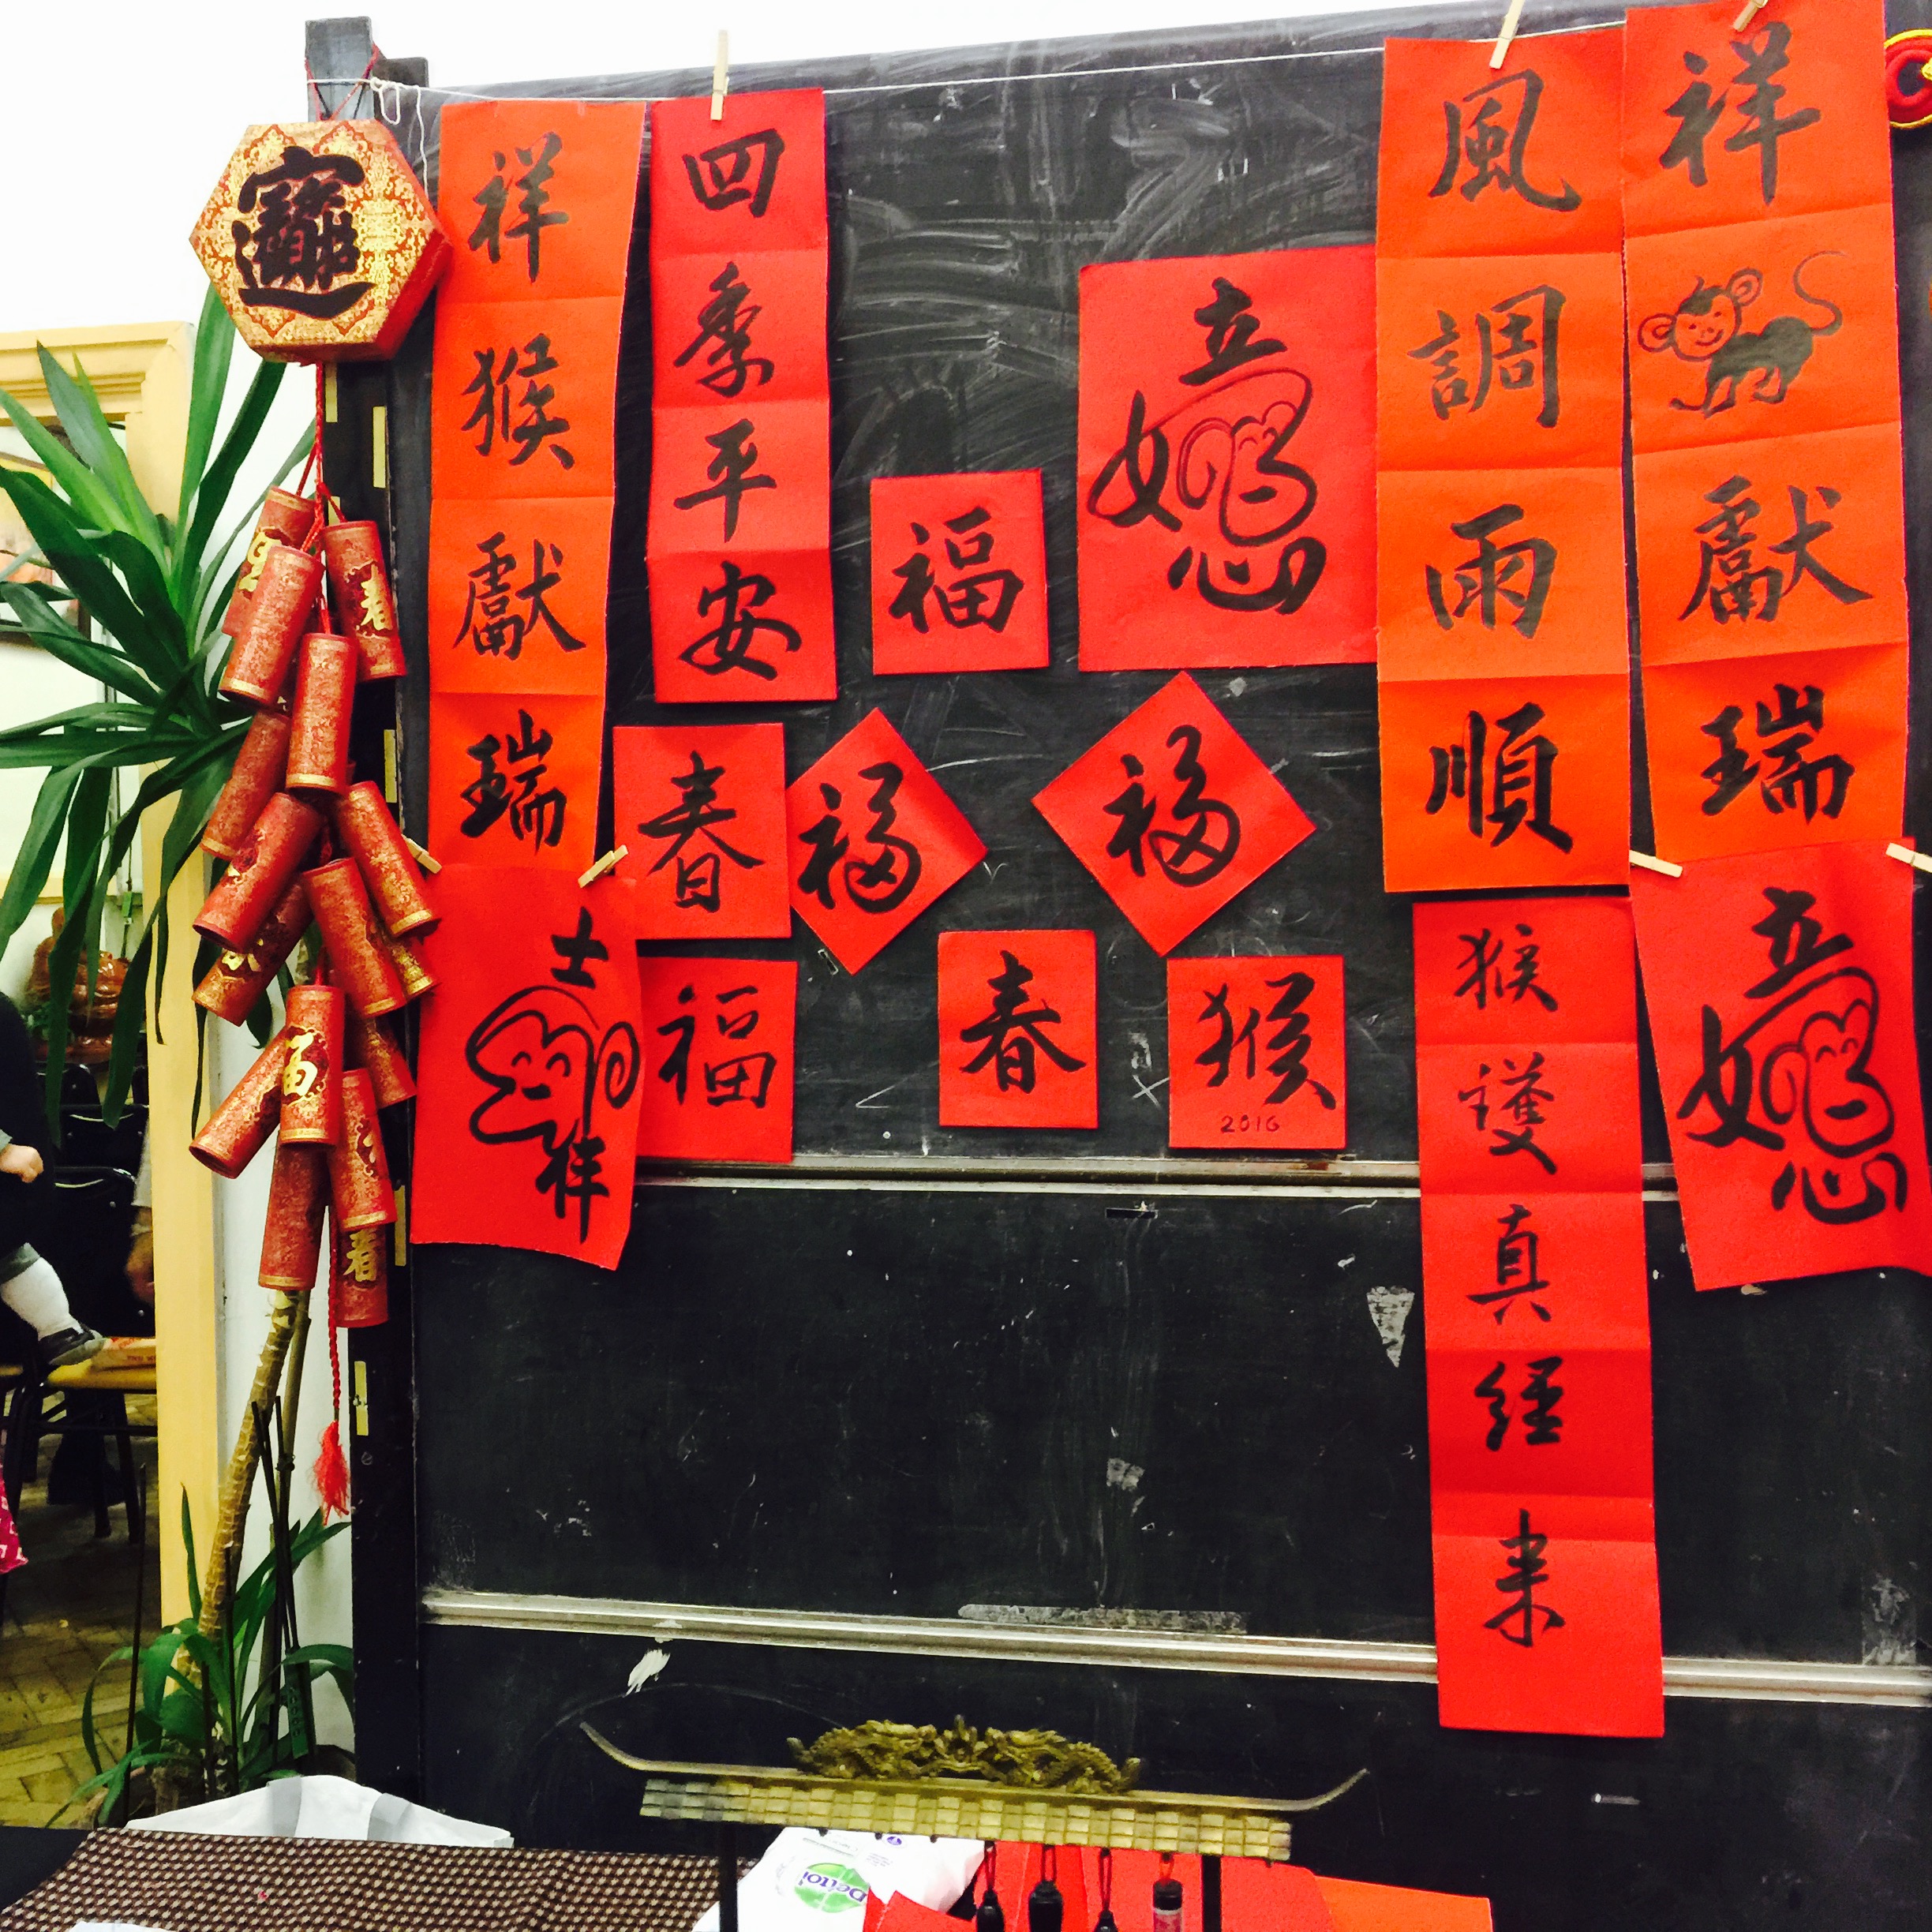 招財進寶
春
春
祥猴獻瑞
四季平安
福
風調雨順
祥獻瑞
春
福
福
福
春
猴
2016
猴護真經來
Dettol